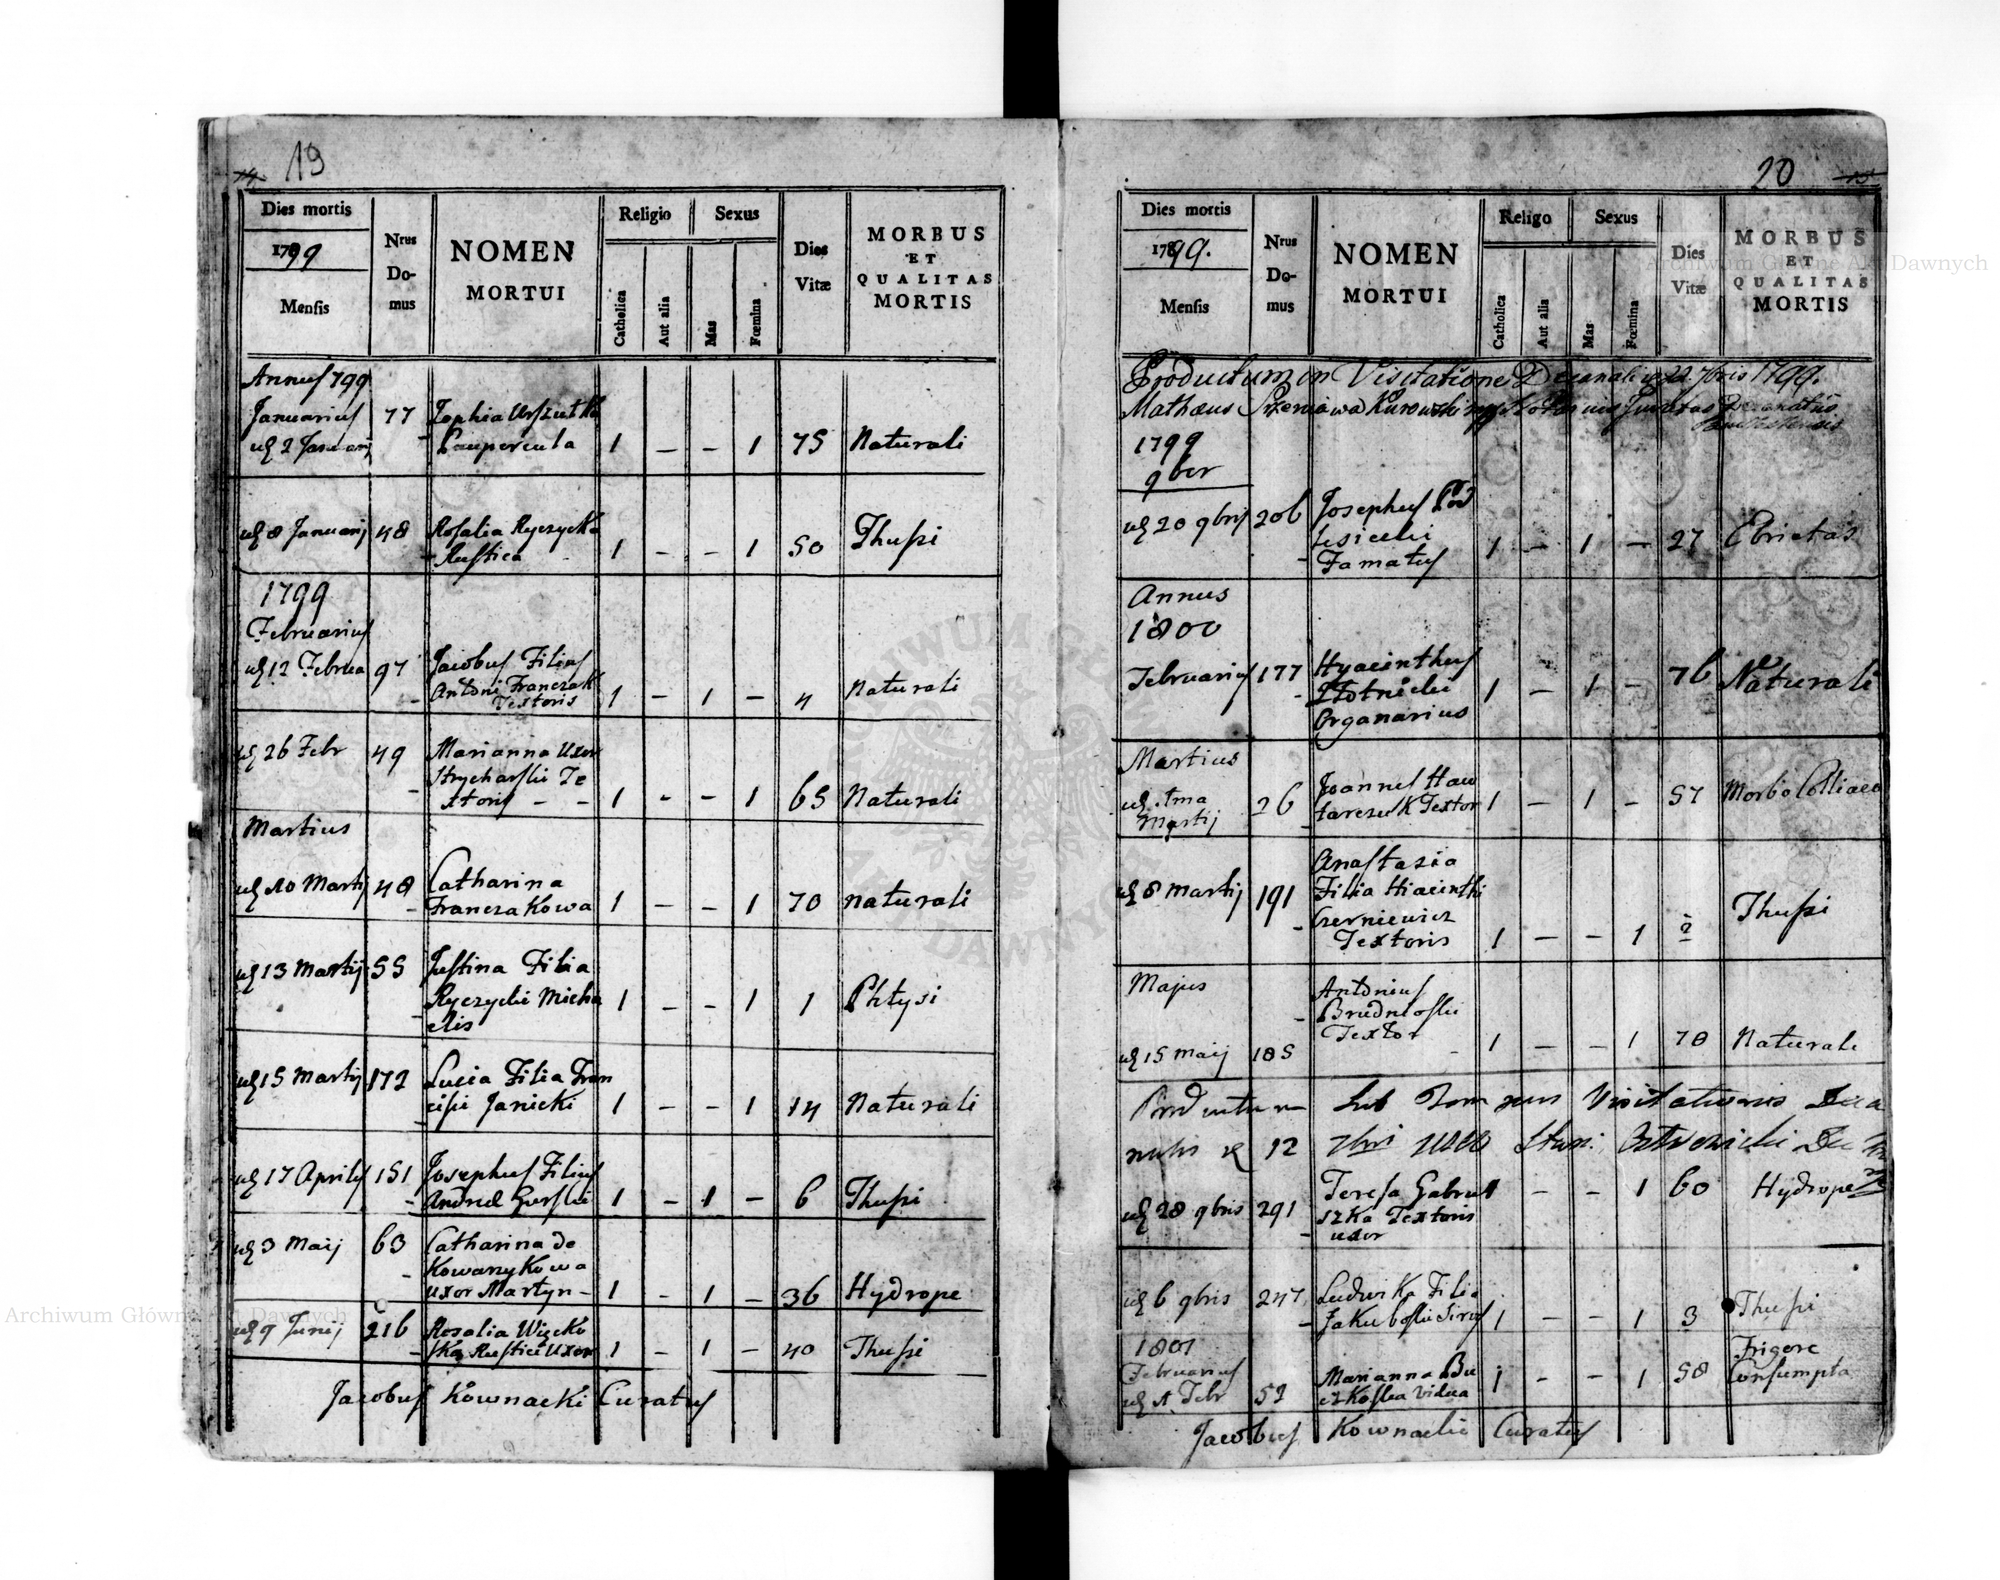 19
Dies mortis
1799
Mensis
Nrus Do- mus
NOMEN
MORTUI
Religio
Catholica
Aut alia
Sexus
Mas
Fœmina
Dies
Vitæ
MORBUS
ET
QUALITAS
MORTIS
Annus 799
Januarius 77 Zophia
2 Januarij Paupercula 1 – – 1 75 Naturali
8 Januarij 48 Rosalia Ryczycka
Rustica 1 – – 1 50 Thussi
1799
Februarius
12 Februa 97 Jacobus Filius
Antoni Franczak
Textoris 1 – 1 – 4 Naturali
26 Febr 49 Marianna Uxor
Strycharski Te
xtoris – – 1 – – 1 65 Naturali
Martius
10 Martij 48 Catharina
Franczakowa 1 – – 1 70 naturali
13 Martij 55 Justina Filia
Ryczycki Micha
elis 1 – – 1 1 Phtysi
15 Martij 172 Lucia Filia Fran
cisci Janicki 1 – – 1 14 Naturali
17 Aprilis 151 Josephus Filius
Andreæ Gorski 1 – 1 – 6 Thussi
3 Maij 63 Catharina de
Kowanykowa
uxor Martyn – 1 – 1 – 36 Hydrope
9 Junij 216 Rosalia
ska Rustici Uxor 1 – 1 – 40 Thussi
Jacobus Kownacki Curatus
20
Dies mortis
1799.
Mensis
Nrus Do- mus
NOMEN
MORTUI
Religo
Catholica
Aut alia
Sexus
Mas
Fœmina
Dies
Vitæ
MORBUS
ET
QUALITAS
MORTIS
Productum in Visitatione Decanali 22. 7bris 1799.
Mathæus Kurowski Notarius Juratus Decanatus
1799
9ber
20 9bris 206 Josephus
Famatus 1 – 1 – 27 Ebrietas
Annus
1800
Februarius 177 Hyacinthus
Złotnicki 1 – 1 – 76 Naturali
Organarius
Martius
1ma 26 Joannes Haw
Martij
rareszuk Textor 1 – 1 – 57 Morbo Colliaco
8 Martij 191 Anastazia
Filia Hiacinthi
Czerniewicz
Textoris 1 – – 1 2 Thussi
Majus Antonius
Brudnioski
Textor
15 Maij 185 1 – – 1 78 Naturali
Productum Sub Tempus Visitationis Deca
nalis 12 7bri 1800
28 9bris 291 Teresa Gabrul
szka Textoris
uxor – – 1 60 Hydrope
6 9bris 247 Ludwika Filia
Jakuboski 1 – – 1 3 Thussi
1801
Februarius Frigore
1 Febr 52 Marianna Bu
czkoska vidua 1 – – 1 58 Consumpta
Jacobus Kownacki Curatus
Archiwum Główne Akt Dawnych
Archiwum Główne Akt Dawnych